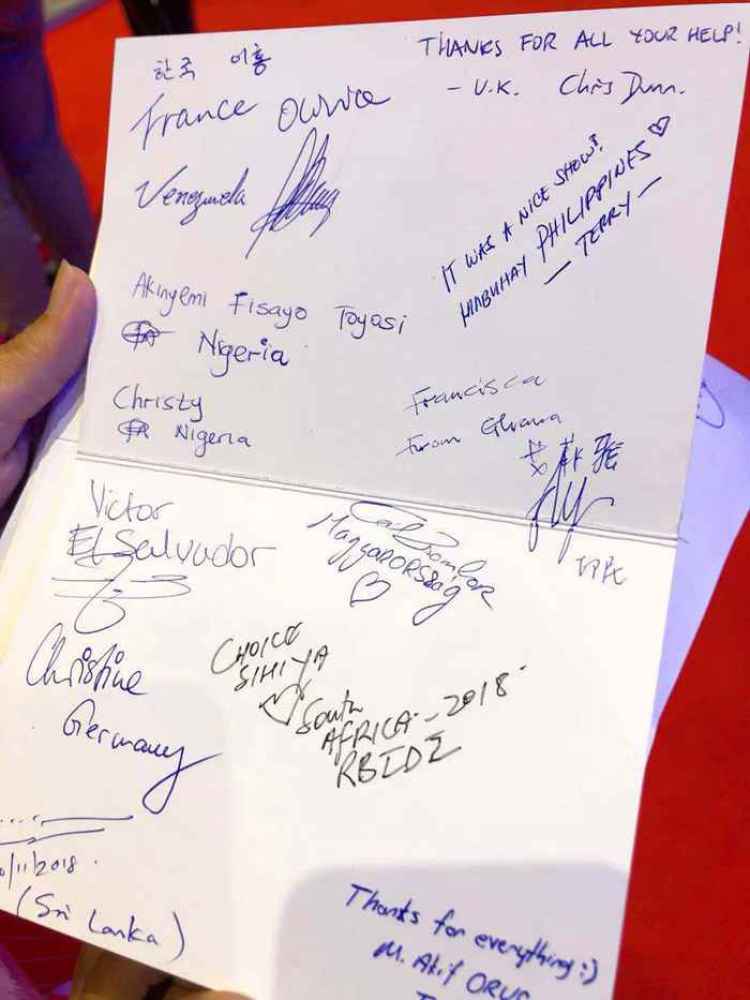 한국 이홍
THANKS FOR ALL YOUR HELP!
- U.K. Chris Dunn.
France
Venezuela
IT WAS A NICE SHOW!
MABUHAY PHILIPPINES ♡
— TERRY —
Akinyemi Fisayo Toyosi
Nigeria
Christy
Nigeria
Francisca
From Ghana
Victor
El Salvador
MAGYARORSZÁG
♡
Christine
Germany
CHOICE
SIHIYA
South
AFRICA - 2018
RBIDZ
/11/2018.
(Sri Lanka)
Thanks for everything :)
M. Akif ORUC